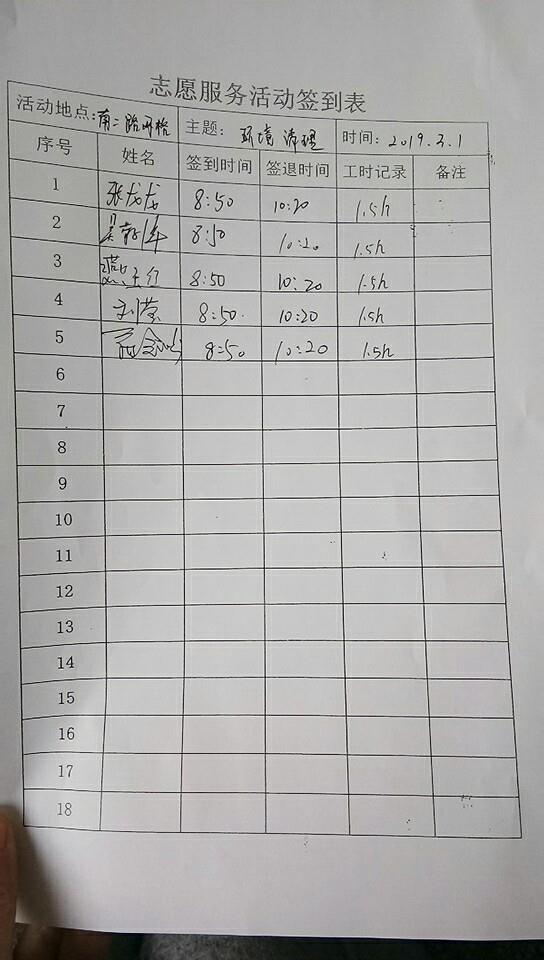 志愿服务活动签到表
活动地点:南二路网格 主题: 环境清理 时间: 2019.3.1
序号 姓名 签到时间 签退时间 工时记录 备注
1 张龙龙 8:50 10:20 1.5h
2 8:50 10:20 1.5h
3 8:50 10:20 1.5h
4 刘莹 8:50 10:20 1.5h
5 8:50 10:20 1.5h
6
7
8
9
10
11
12
13
14
15
16
17
18